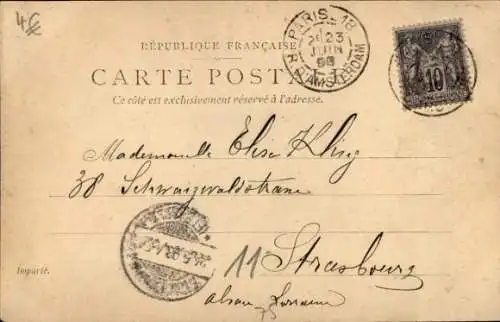 4€
RÉPUBLIQUE FRANÇAISE
CARTE POSTA
Ce côté est exclusivement réservé à l'adresse.
PARIS 18
23
JUIN
98
R. D'AMSTERDAM
10
Mademoiselle Elisa Kling
38 Schwarzwaldstrasse
11 Strasbourg
Alsace-Lorraine
Imprimé.